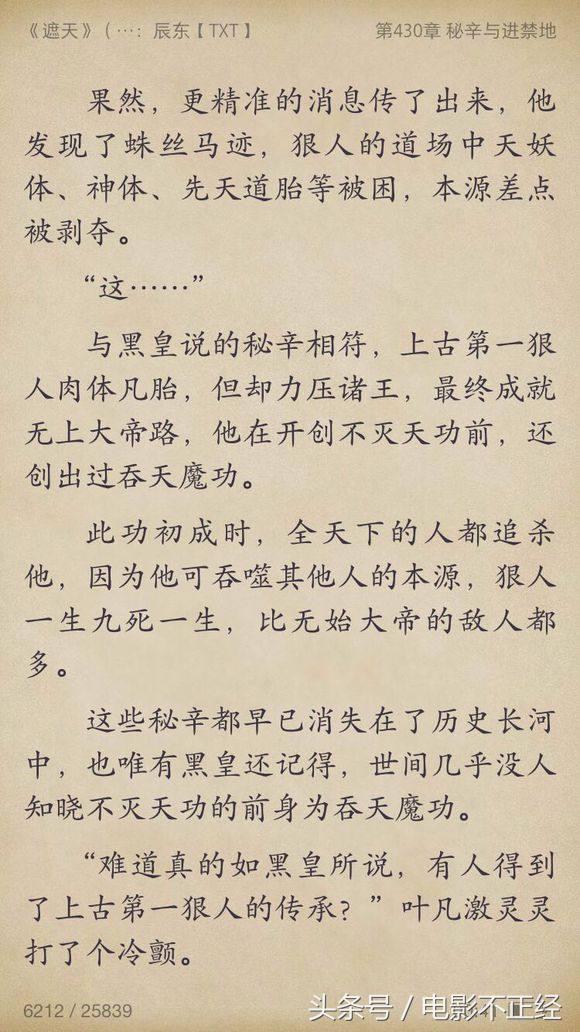 《遮天》（…：辰东【TXT】
第430章 秘辛与进禁地
果然，更精准的消息传了出来，他
发现了蛛丝马迹，狠人的道场中天妖
体、神体、先天道胎等被困，本源差点
被剥夺。
“这……”
与黑皇说的秘辛相符，上古第一狠
人肉体凡胎，但却力压诸王，最终成就
无上大帝路，他在开创不灭天功前，还
创出过吞天魔功。
此功初成时，全天下的人都追杀
他，因为他可吞噬其他人的本源，狠人
一生九死一生，比无始大帝的敌人都
多。
这些秘辛都早已消失在了历史长河
中，也唯有黑皇还记得，世间几乎没人
知晓不灭天功的前身为吞天魔功。
“难道真的如黑皇所说，有人得到
了上古第一狠人的传承？”叶凡激灵灵
打了个冷颤。
6212 / 25839
头条号／电影不正经